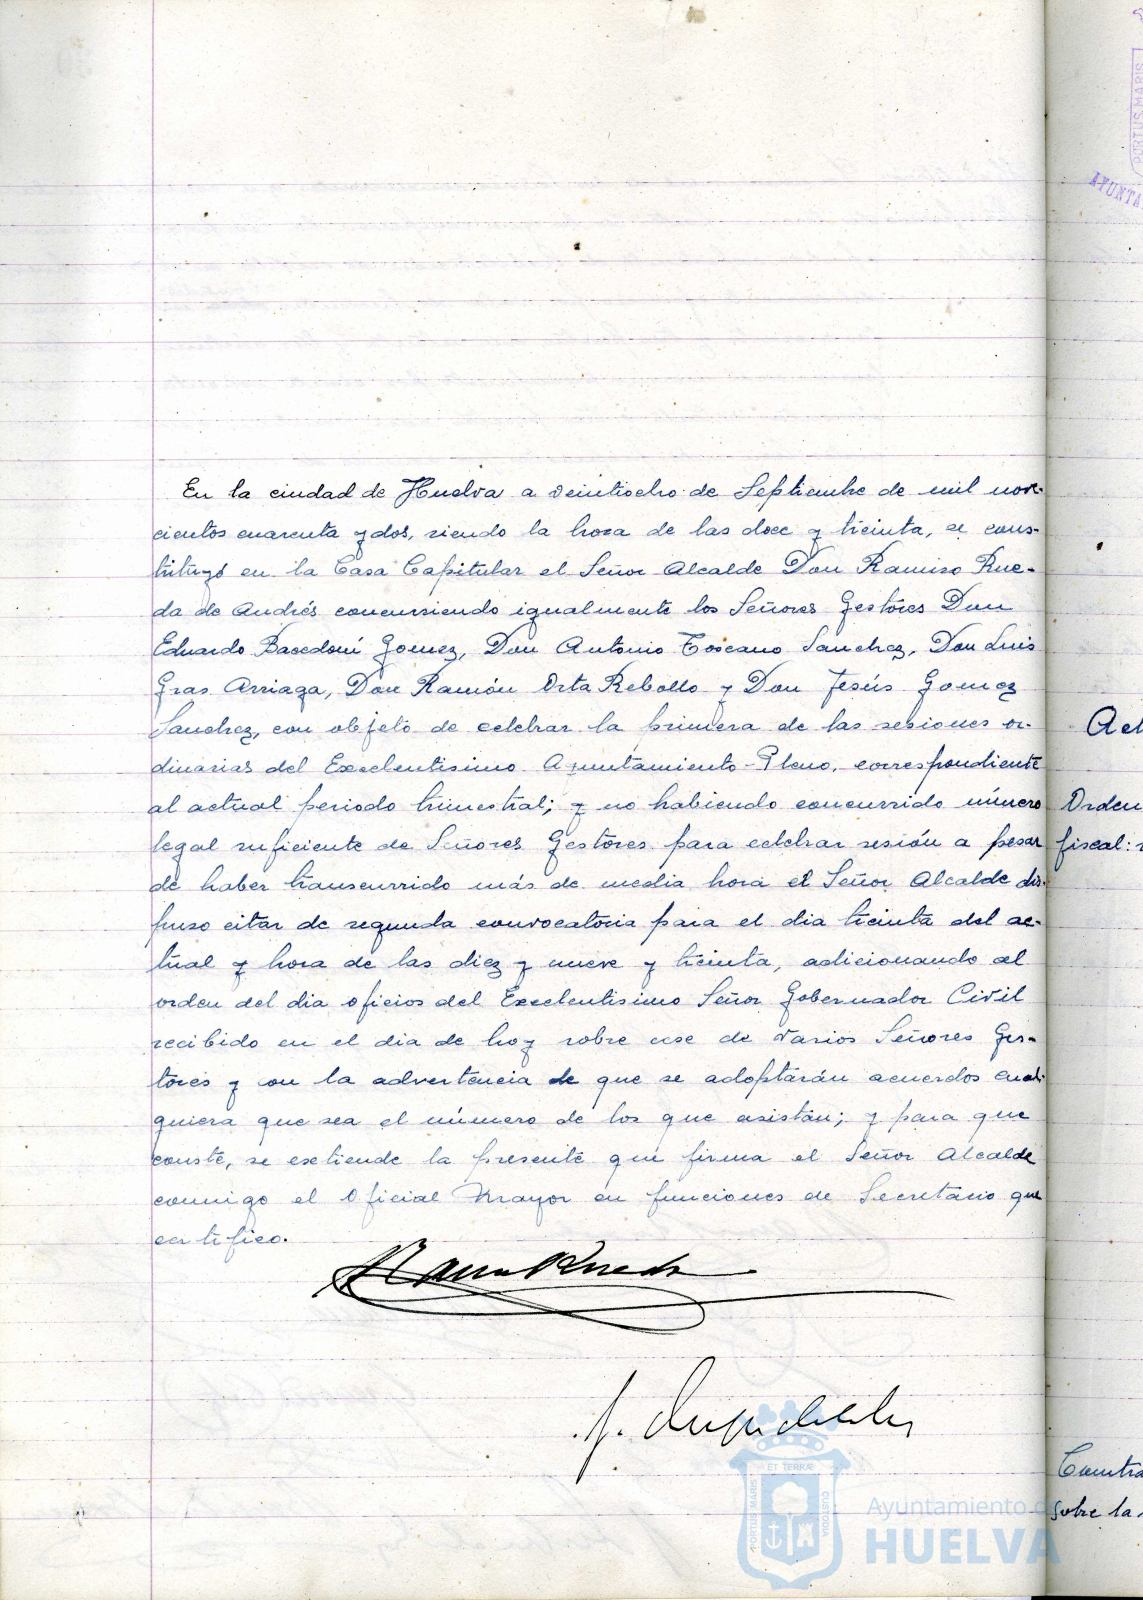 En la ciudad de Huelva a veintiocho de Septiembre de mil nove-
cientos cuarenta y dos, siendo la hora de las doce y treinta, se cons-
tituyó en la Casa Capitular el Señor Alcalde Don Ramiro Rue-
da de Andrés concurriendo igualmente los Señores Gestores Don
Eduardo Bacedoni Gomez, Don Antonio Toscano Sanchez, Don Luis
Gras Arriaga, Don Ramón Orta Rebollo y Don Jesús Gomez
Sanchez, con objeto de celebrar la primera de las sesiones or-
dinarias del Excelentisimo Ayuntamiento-Pleno, correspondiente
al actual periodo trimestral; y no habiendo concurrido número
legal suficiente de Señores Gestores para celebrar sesión a pesar
de haber transcurrido más de media hora el Señor Alcalde dis-
puso citar de segunda convocatoria para el dia treinta del ac-
tual y hora de las diez y nueve y treinta, adicionando al
orden del dia oficios del Excelentisimo Señor Gobernador Civil
recibido en el dia de hoy sobre cese de varios Señores Ges-
tores y con la advertencia de que se adoptarán acuerdos cual-
quiera que sea el número de los que asistan; y para que
conste, se extiende la presente que firma el Señor Alcalde
conmigo el Oficial Mayor en funciones de Secretario que
certifico.
Ram Rueda
PORTUS MARIS
ET TERRÆ
CUSTODIA
Ayuntamiento d
HUELVA
PORTUS MARIS
AYUNTA
Act
Orden
fiscal:
Contra
sobre la